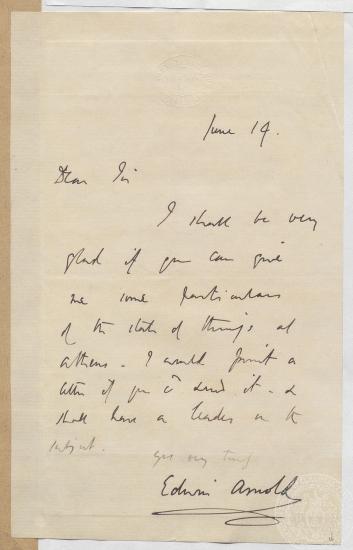 June 14.
Dear Sir
I shall be very
glad if you can give
me some particulars
of the state of things at
Athens. I would print a
letter if you cd send it - &
shall have a leader on the
subject.
yrs very truly
Edwin Arnold